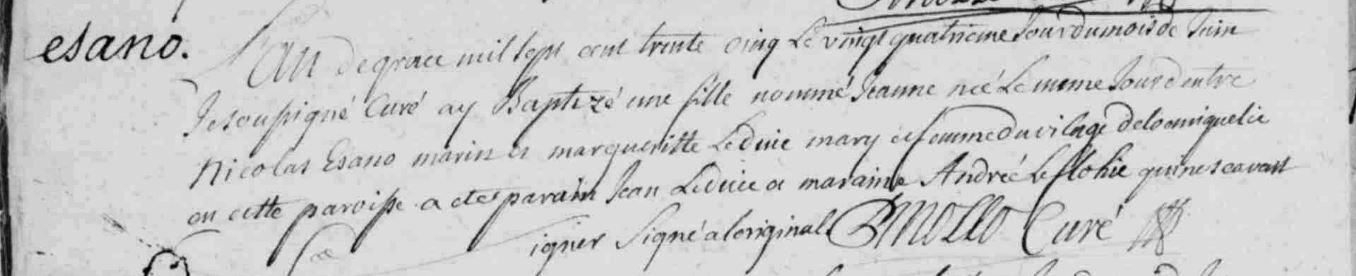 esano.
L'an de grace mil sept cent trente cinq Le vingt quatrieme Jour du mois de Juin
Je soupigné Curé ay Baptizé une fille nommé Jeanne née Le meme Jour d entre
Nicolas Esano marin et margueritte Leduic mary et femme du vilage de locmiquelic
en cette paroisse a eté parain Jean Leduic et maraine Andrée Leflohic qui ne scavent
igner Signé a loriginal Mollo Curé